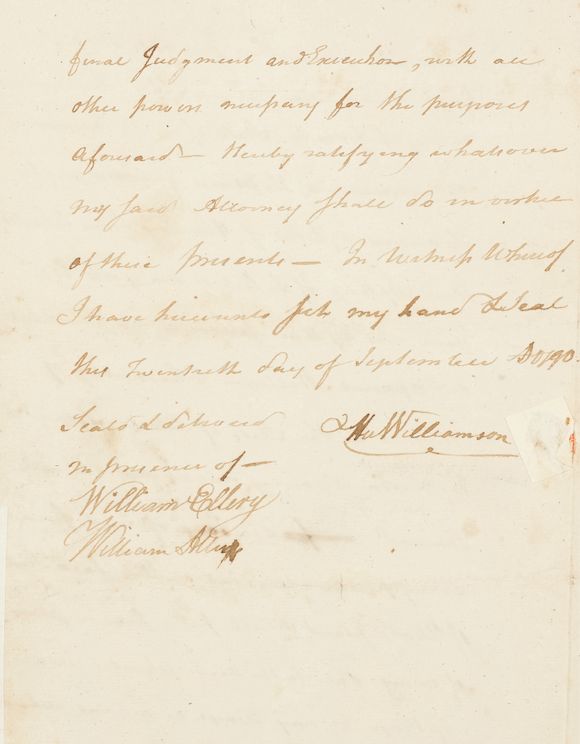 final Judgment and Execution, with all
other powers necessary for the purposes
aforesaid — Hereby ratifying whatsoever
my said Attorney shall do in virtue
of these presents — In Witness Whereof
I have hereunto set my hand & Seal
this Twentieth day of September
Seal'd & deliverd
Hu Williamson
in presence of —
William Ellery
William